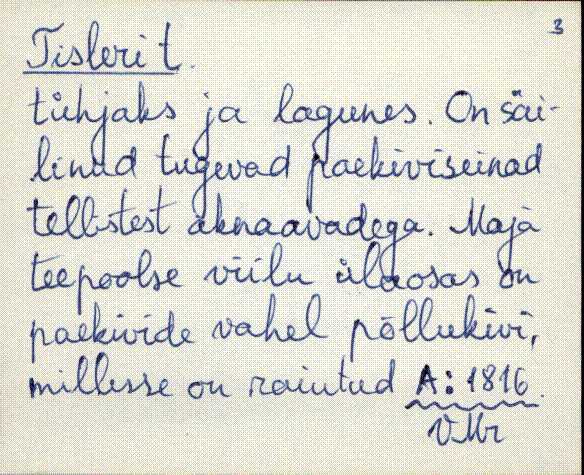 3
Tisleri t.
tühjaks ja lagunes. On säi-
linud tugevad paekiviseinad
tellistest aknaavadega. Maja
teepoolse viilu ülaosas on
paekivide vahel põllukivi,
millesse on raiutud A: 1816.
VMr